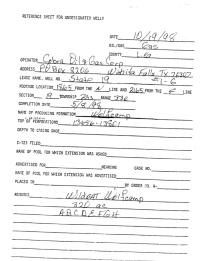 REFERENCE SHEET FOR UNDESIGNATED WELLS
DATE 10/19/98
OIL/GAS Gas
COUNTY Lea
OPERATOR Cobra Oil & Gas Corp
ADDRESS PO Box 8206 Wichita Falls TX 76307
LEASE NAME, WELL NO. State 19 #1-6
FOOTAGE LOCATION 1865 FROM THE N LINE AND 2165 FROM THE E LINE
SECTION TOWNSHIP RANGE
COMPLETION DATE 5/9/98
NAME OF PRODUCING Wolfcamp
TOP OF PERFORATIONS
DEPTH TO CASING SHOE
C-123 FILED
NAME OF POOL FOR WHICH EXTENSION WAS ASKED
ADVERTISED FOR HEARING CASE NO.
NAME OF POOL FOR WHICH EXTENSION WAS ADVERTISED
PLACED IN BY ORDER NO. R-
REMARKS Wildcat Wolfcamp
320 ac
ABCDEFGH